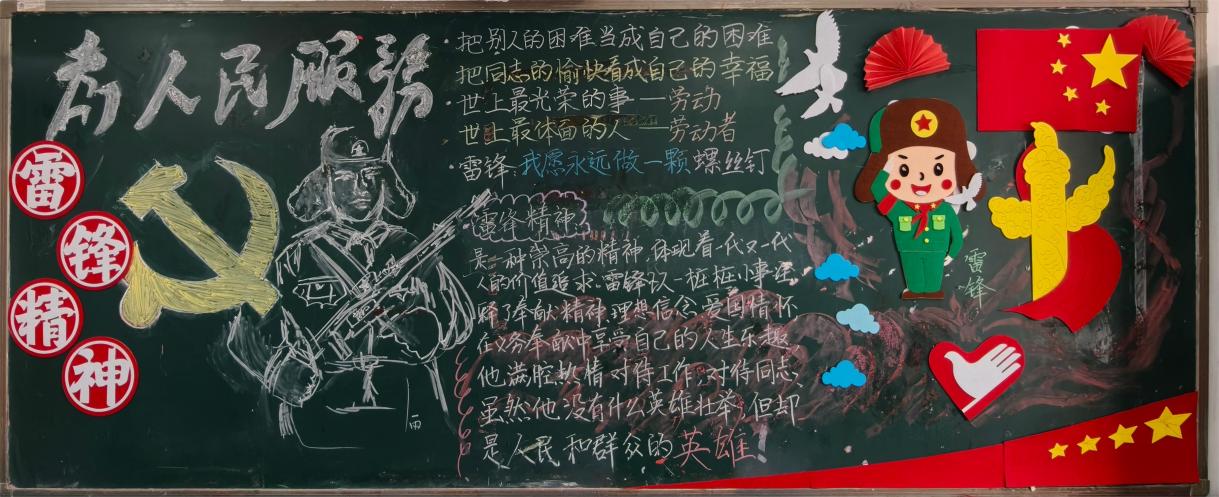 为人民服务
雷
锋
精
神
·把别人的困难当成自己的困难
把同志的愉快看成自己的幸福
·世上最光荣的事——劳动
世上最体面的人——劳动者
·雷锋:我愿永远做一颗螺丝钉
雷锋精神
是一种崇高的精神,体现着一代又一代
人的价值追求.雷锋以一桩桩小事诠
释了奉献精神,理想信念,爱国情怀
在义务奉献中享受自己的人生乐趣
他满腔热情对待工作,对待同志、
虽然他没有什么英雄壮举,但却
是人民和群众的英雄!
雷锋